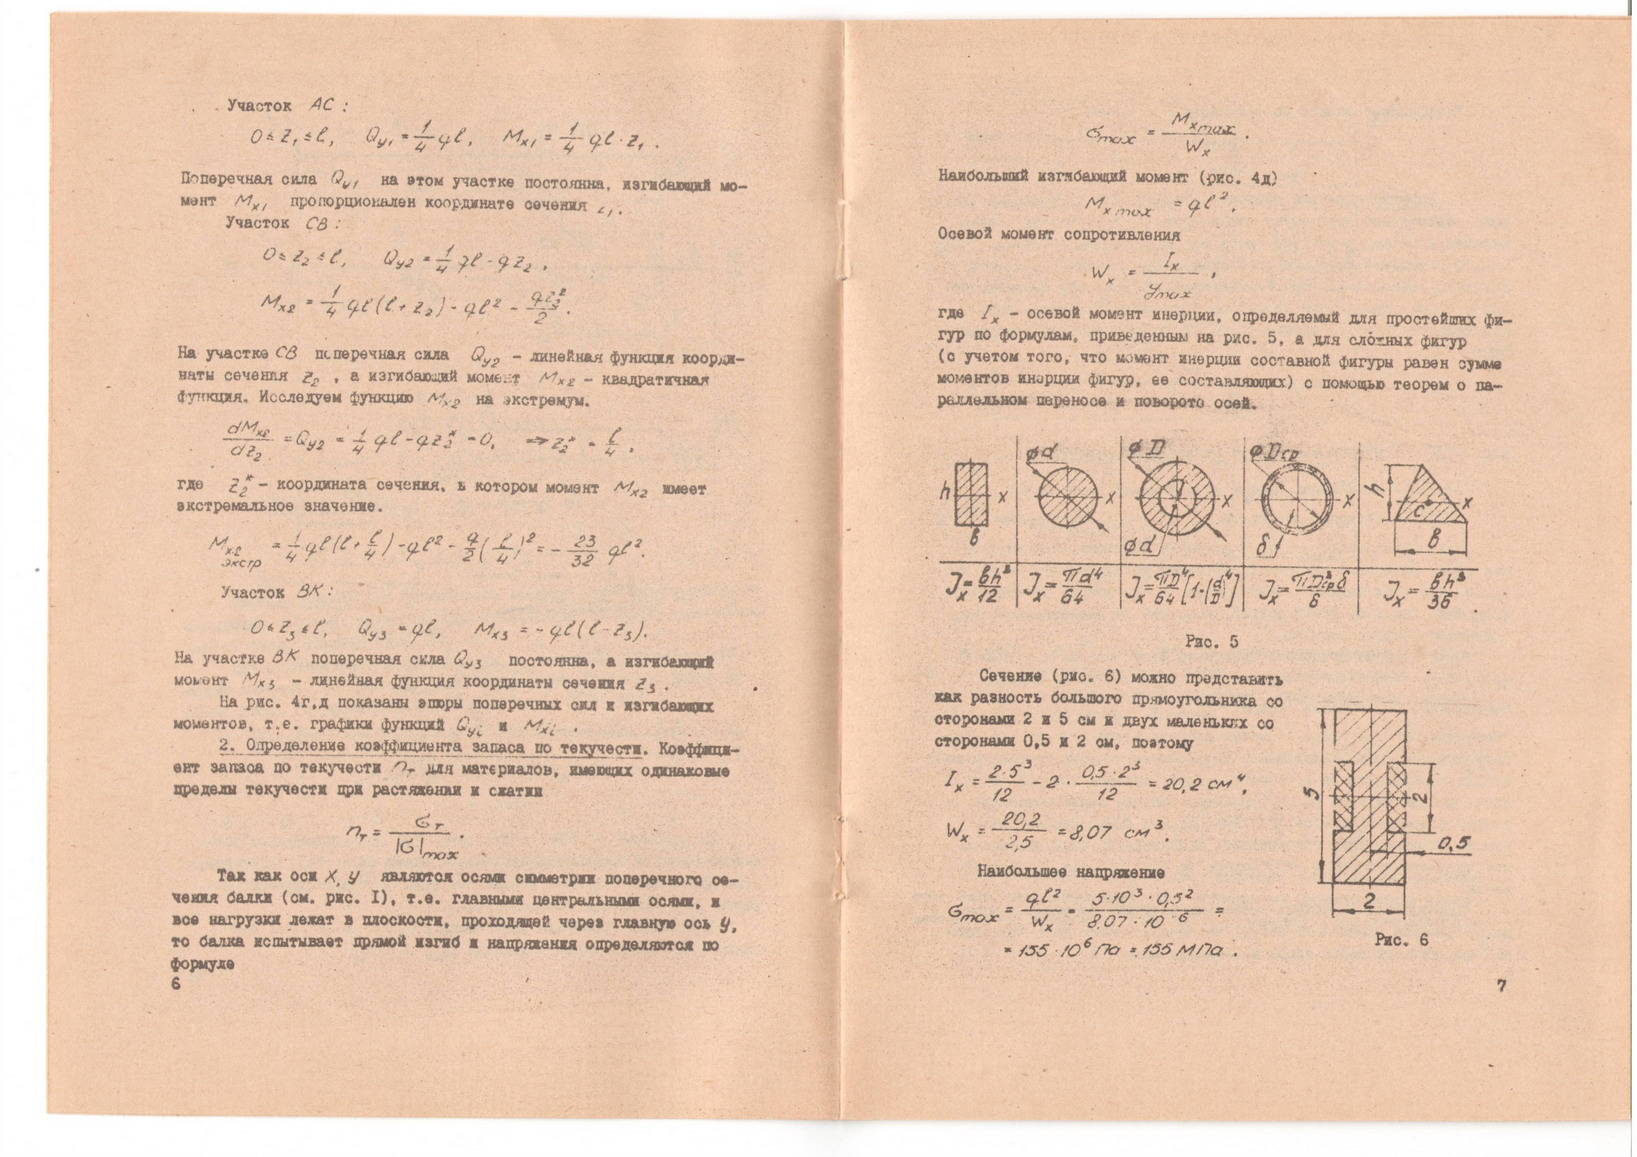 Участок AC :
0 ≤ z₁ ≤ l, Q_y₁ = 1/4 ql, M_x₁ = 1/4 ql · z₁ .
Поперечная сила Q_y₁ на этом участке постоянна, изгибающий мо-
мент M_x₁ пропорционален координате сечения z₁.
Участок CB :
0 ≤ z₂ ≤ l, Q_y2 = 1/4 ql - qz₂ ,
M_x2 = 1/4 ql(l + z₂) - ql² - qz₂²/2 .
На участке CB поперечная сила Q_y2 – линейная функция коорди-
наты сечения z₂ , а изгибающий момент M_x2 – квадратичная
функция. Исследуем функцию M_x2 на экстремум.
dM_x2/dz₂ = Q_y2 = 1/4 ql - qz₂* = 0, ⇒ z₂* = l/4 ,
где z₂* – координата сечения, в котором момент M_x2 имеет
экстремальное значение.
M_x2 экстр = 1/4 ql(l + l/4) - ql² - q/2 (l/4)² = - 23/32 ql².
Участок BK :
0 ≤ z₃ ≤ l, Q_y3 = ql, M_x3 = - ql(l - z₃).
На участке BK поперечная сила Q_y3 постоянна, а изгибающий
момент M_x3 – линейная функция координаты сечения z₃ .
На рис. 4г,д показаны эпюры поперечных сил и изгибающих
моментов, т.е. графики функций Q_yi и M_xi .
2. Определение коэффициента запаса по текучести. Коэффици-
ент запаса по текучести n_т для материалов, имеющих одинаковые
пределы текучести при растяжении и сжатии
n_т = σ_т / |σ|max .
Так как оси X, Y являются осями симметрии поперечного се-
чения балки (см. рис. I), т.е. главными центральными осями, и
все нагрузки лежат в плоскости, проходящей через главную ось Y,
то балка испытывает прямой изгиб и напряжения определяются по
формуле
6
σmax = M_x max / W_x .
Наибольший изгибающий момент (рис. 4д)
M_x max = ql² .
Осевой момент сопротивления
W_x = I_x / y max ,
где I_x – осевой момент инерции, определяемый для простейших фи-
гур по формулам, приведенным на рис. 5, а для сложных фигур
(с учетом того, что момент инерции составной фигуры равен сумме
моментов инерции фигур, ее составляющих) с помощью теорем о па-
раллельном переносе и повороте осей.
h x в
⌀d x
⌀D x ⌀d
⌀Dср x δ
h c x в
J_x = вh³/12
J_x = πd⁴/64
J_x = πD⁴/64 [1-(d/D)⁴]
J_x = πD³ср δ/8
J_x = вh³/36
Рис. 5
Сечение (рис. 6) можно представить
как разность большого прямоугольника со
сторонами 2 и 5 см и двух маленьких со
сторонами 0,5 и 2 см, поэтому
I_x = 2·5³/12 - 2 · 0,5·2³/12 = 20,2 см⁴,
W_x = 20,2/2,5 = 8,07 см³.
Наибольшее напряжение
σmax = ql²/W_x = 5·10³·0,5²/8,07·10⁻⁶ =
= 155·10⁶ Па = 155 МПа .
5
2
0,5
2
Рис. 6
7